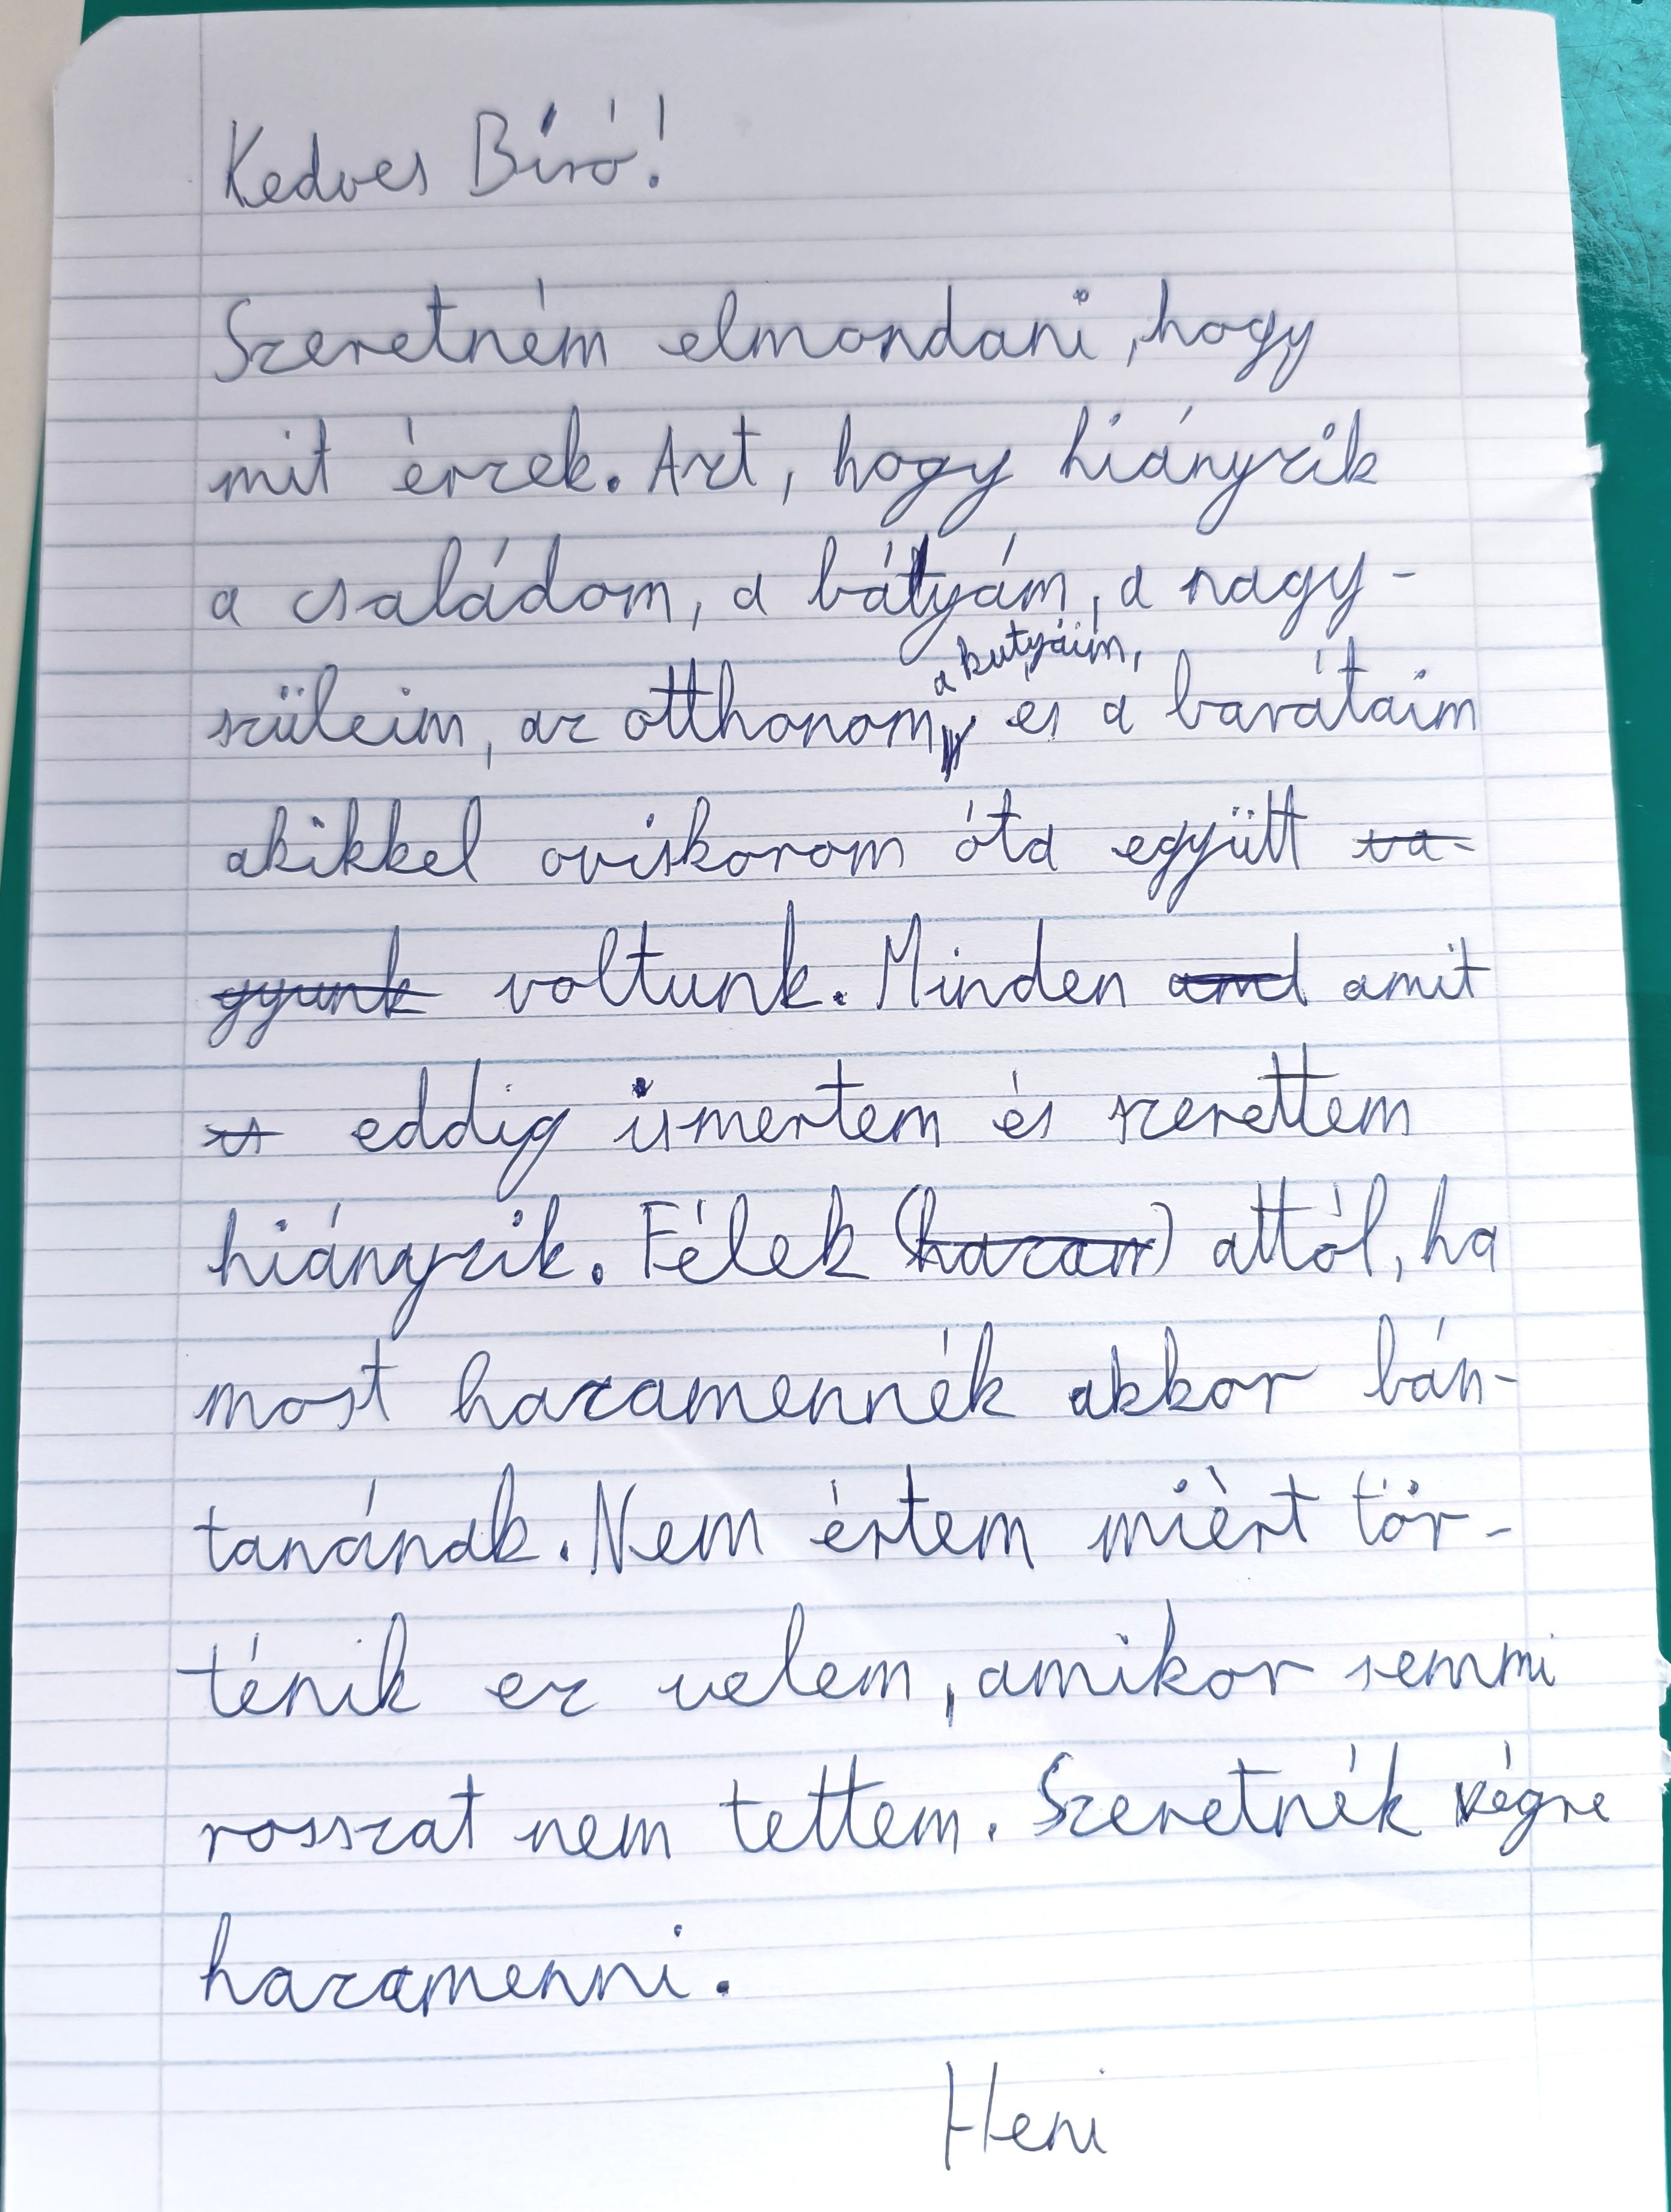 Kedves Bíró!
Szeretném elmondani, hogy
mit érzek. Azt, hogy hiányzik
a családom, a bátyám, a nagy-
a kutyáim,
szüleim, az otthonom és a barátaim
akikkel oviskorom óta együtt va-
gyunk voltunk. Minden amit
is eddig ismertem és szerettem
hiányzik. Félek (hazan) attól, ha
most hazamennék akkor bán-
tanának. Nem értem miért tör-
ténik ez velem, amikor semmi
rosszat nem tettem. Szeretnék végre
hazamenni.
Heni